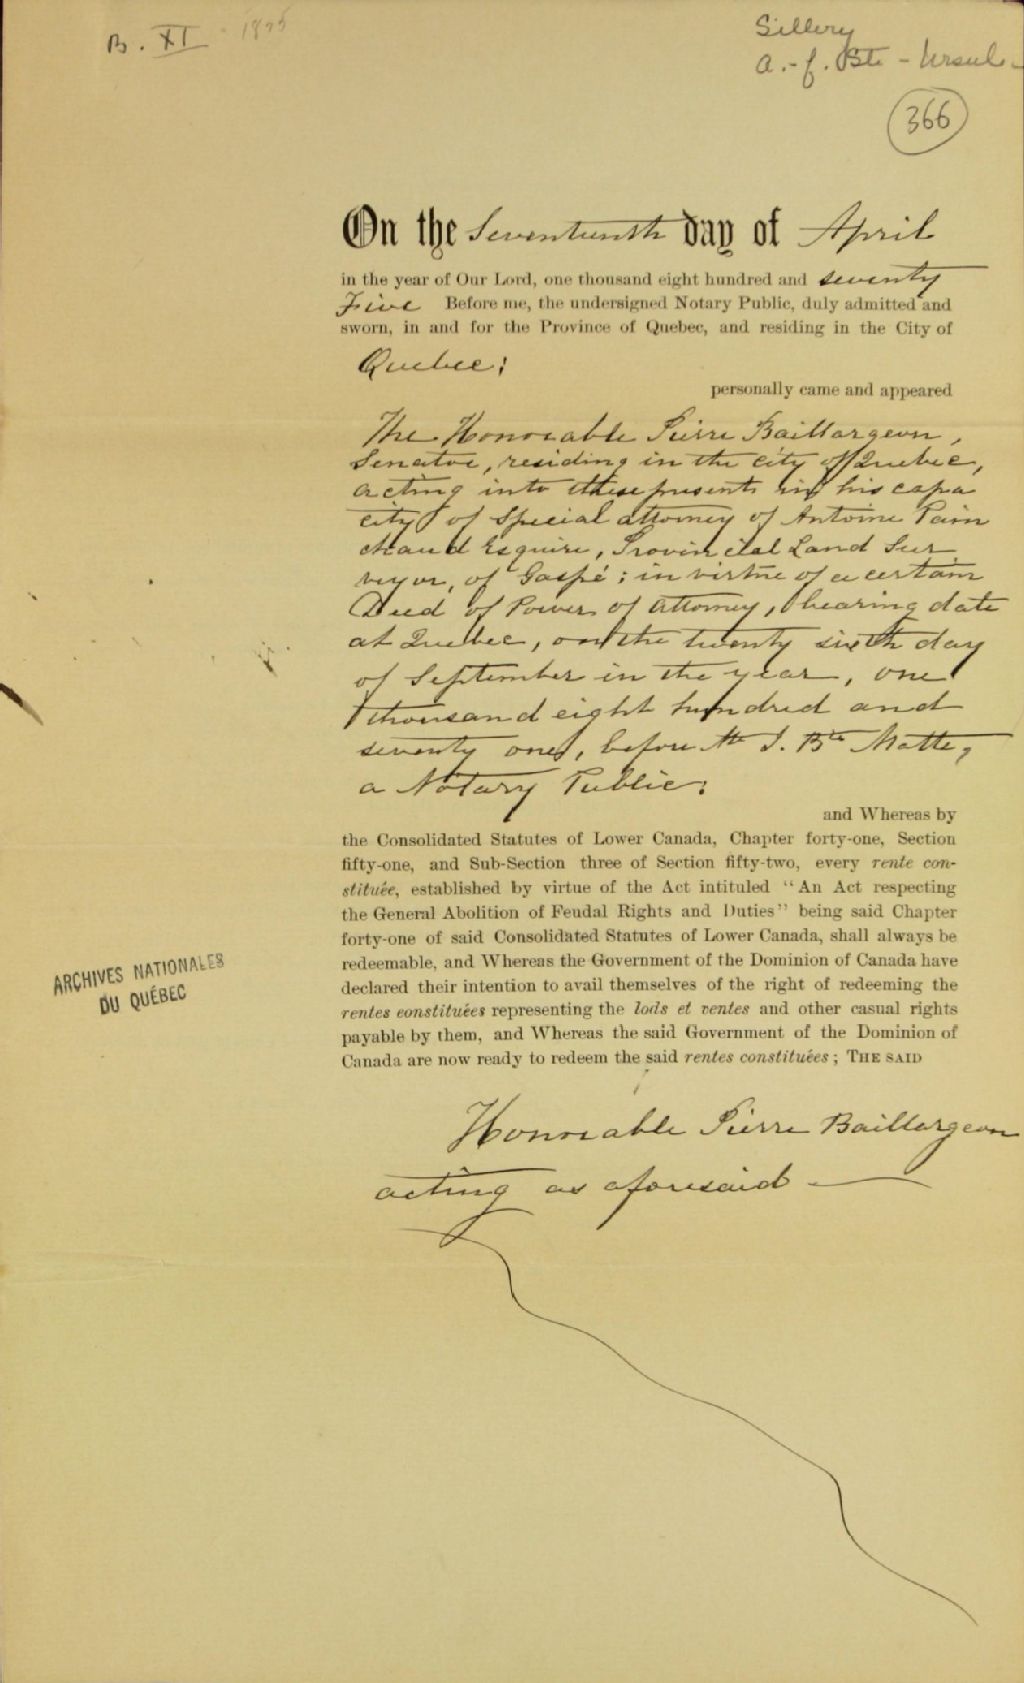 B. XI - 1875
Sillery
a.-f. Ste-Ursule
366
On the Seventeenth day of April
in the year of Our Lord, one thousand eight hundred and seventy
Five Before me, the undersigned Notary Public, duly admitted and
sworn, in and for the Province of Quebec, and residing in the City of
Quebec;
personally came and appeared
The Honorable Pierre Baillargeon,
Senator, residing in the city of Quebec,
acting into these presents in his capa
city of Special attorney of Antoine Pain
chaud Esquire, Provincial Land Sur
veyor, of Gaspé; in virtue of a certain
Deed of Power of Attorney, bearing date
at Quebec, on the twenty sixth day
of September in the year, one
thousand eight hundred and
seventy one, before Mtre J. Bte Matte,
a Notary Public;
and Whereas by
the Consolidated Statutes of Lower Canada, Chapter forty-one, Section
fifty-one, and Sub-Section three of Section fifty-two, every rente con-
stituée, established by virtue of the Act intituled "An Act respecting
the General Abolition of Feudal Rights and Duties" being said Chapter
forty-one of said Consolidated Statutes of Lower Canada, shall always be
redeemable, and Whereas the Government of the Dominion of Canada have
declared their intention to avail themselves of the right of redeeming the
rentes constituées representing the lods et rentes and other casual rights
payable by them, and Whereas the said Government of the Dominion of
Canada are now ready to redeem the said rentes constituées; THE SAID
ARCHIVES NATIONALES
DU QUÉBEC
Honorable Pierre Baillargeon
acting as aforesaid